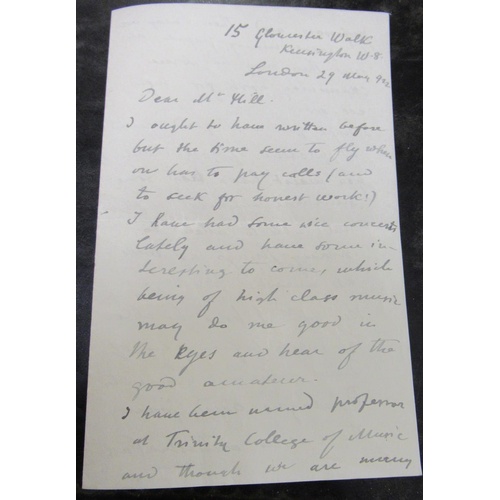 15 Gloucester Walk
Kensington W-8.
London 29 May
Dear Mr Hill.
I ought to have written before
but the time seem to fly when
on has to pay calls (and
to seek for honest work!)
I have had some nice concerts
lately and have some in-
teresting to come, which
being of high class music
may do me good in
the eyes and hear of the
good amateur.
I have been named professor
at Trinity College of Music
and though we are many